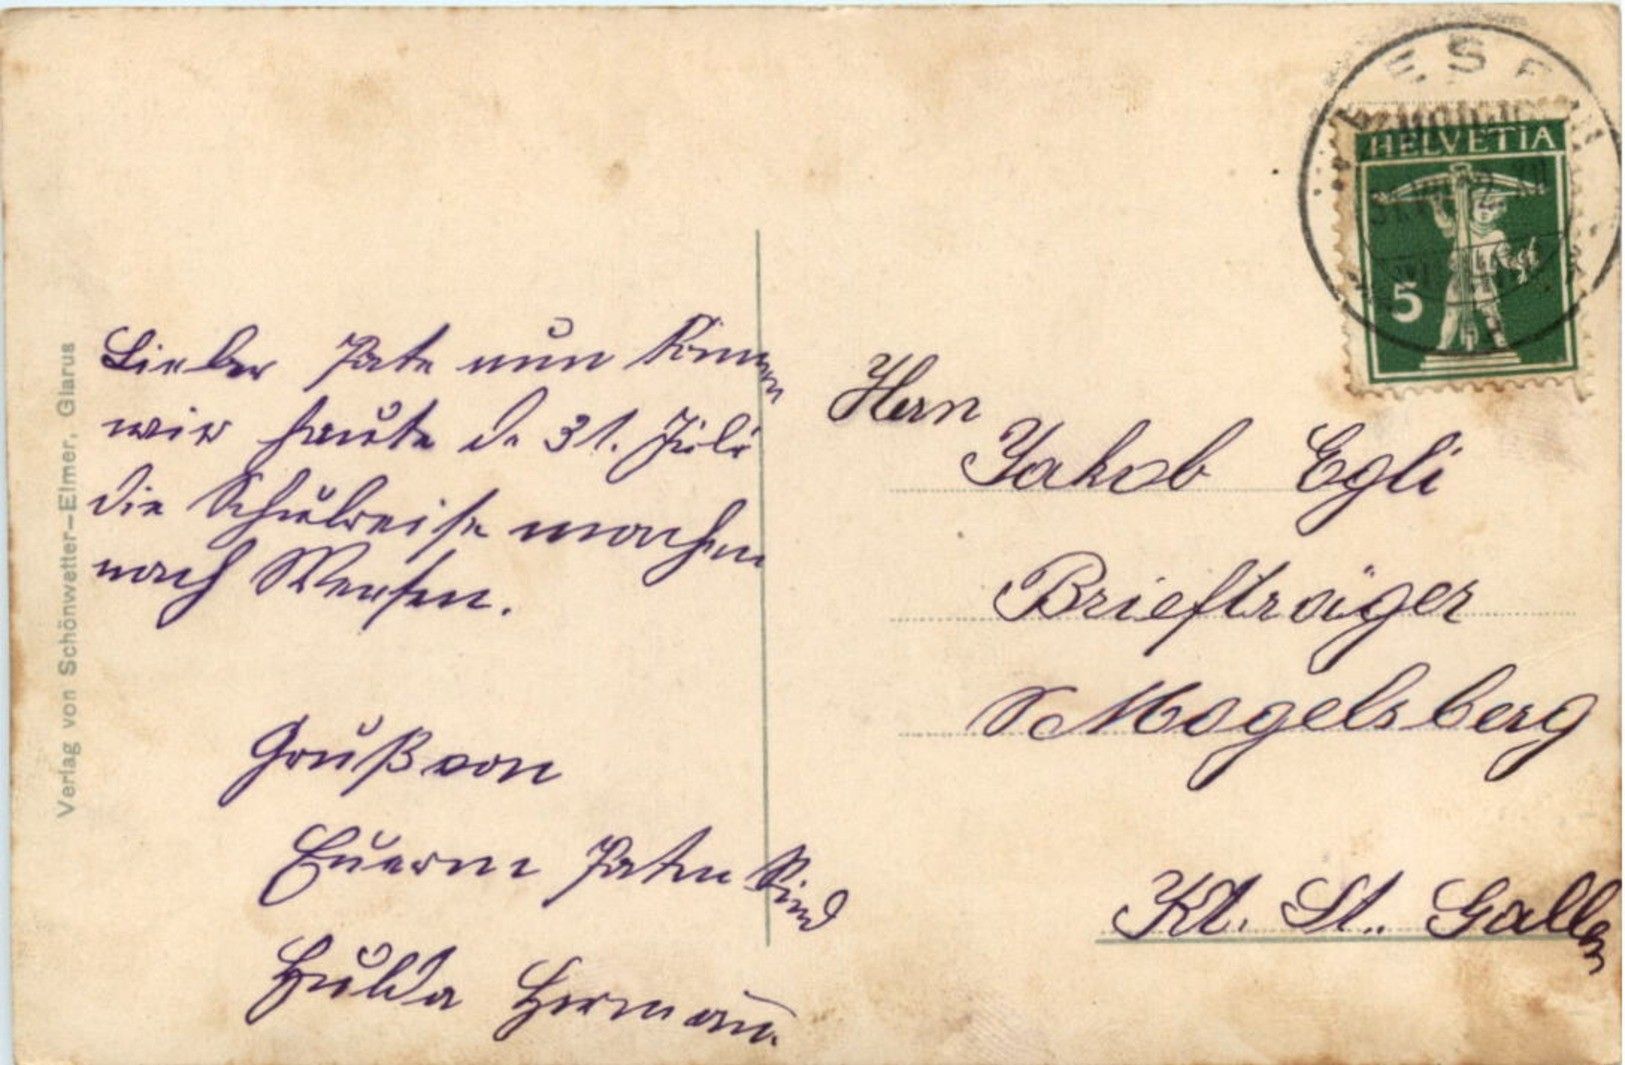 Lieber Pate nun können
wir heute d. 31. Juli
die Schulreise machen
nach Weesen.
Gruß von
Euerm Paten Kind
Hulda Hermann.
Herrn
Jakob Egli
Briefträger
Mogelsberg
Kt. St. Gallen
HELVETIA
5
Verlag von Schönwetter-Elmer, Glarus